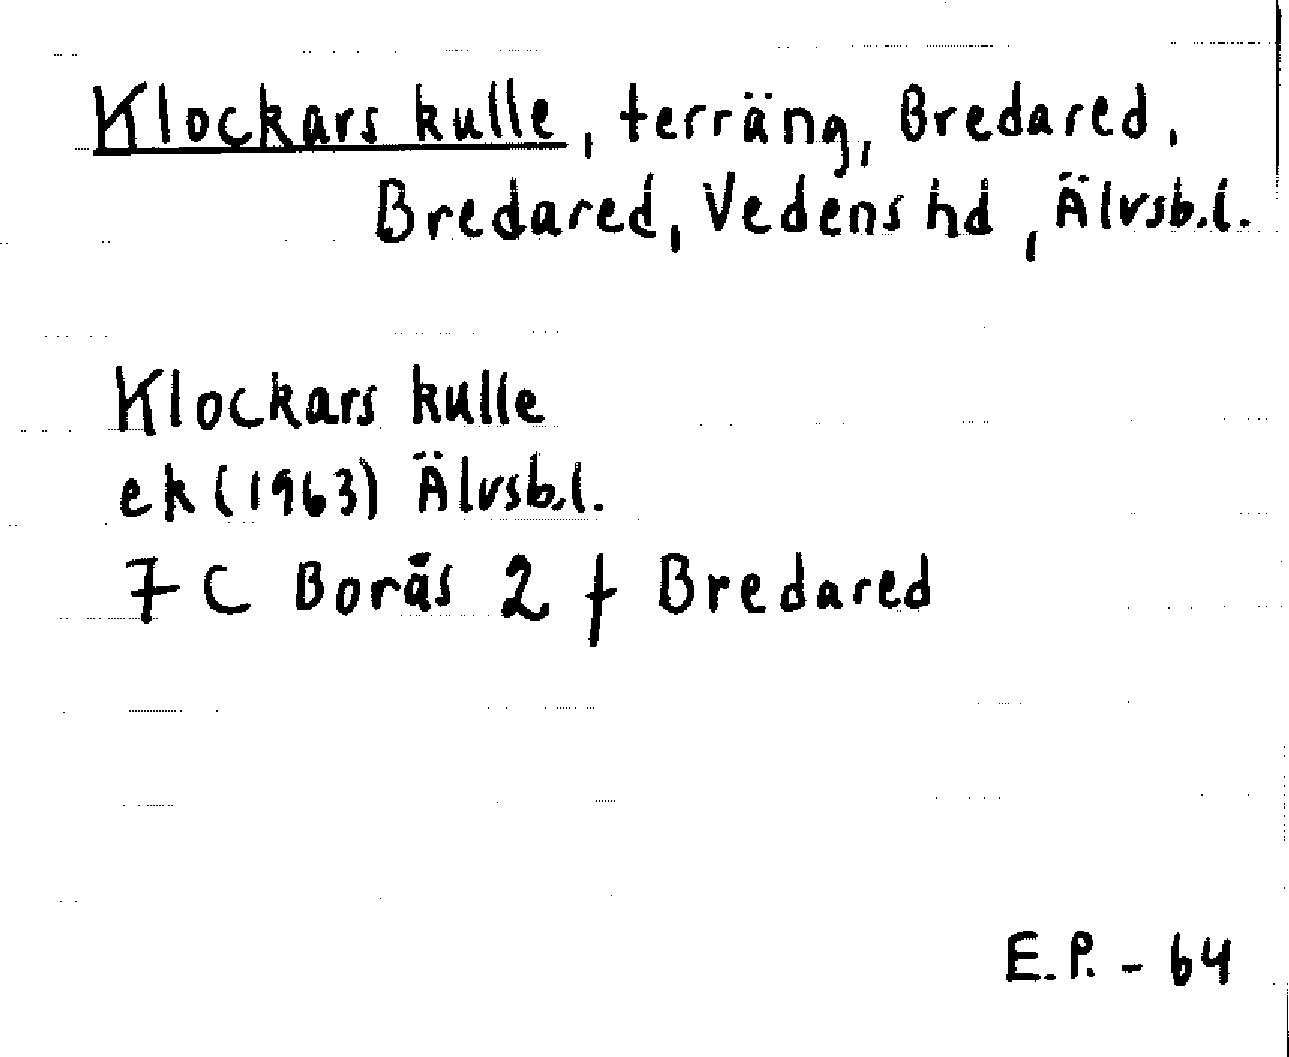 Klockars kulle, terräng, Bredared,
Bredared, Vedens hd, Älvsb.l.
Klockars kulle
ek (1963) Älvsb.l.
7 C Borås 2 f Bredared
E.P. - 64